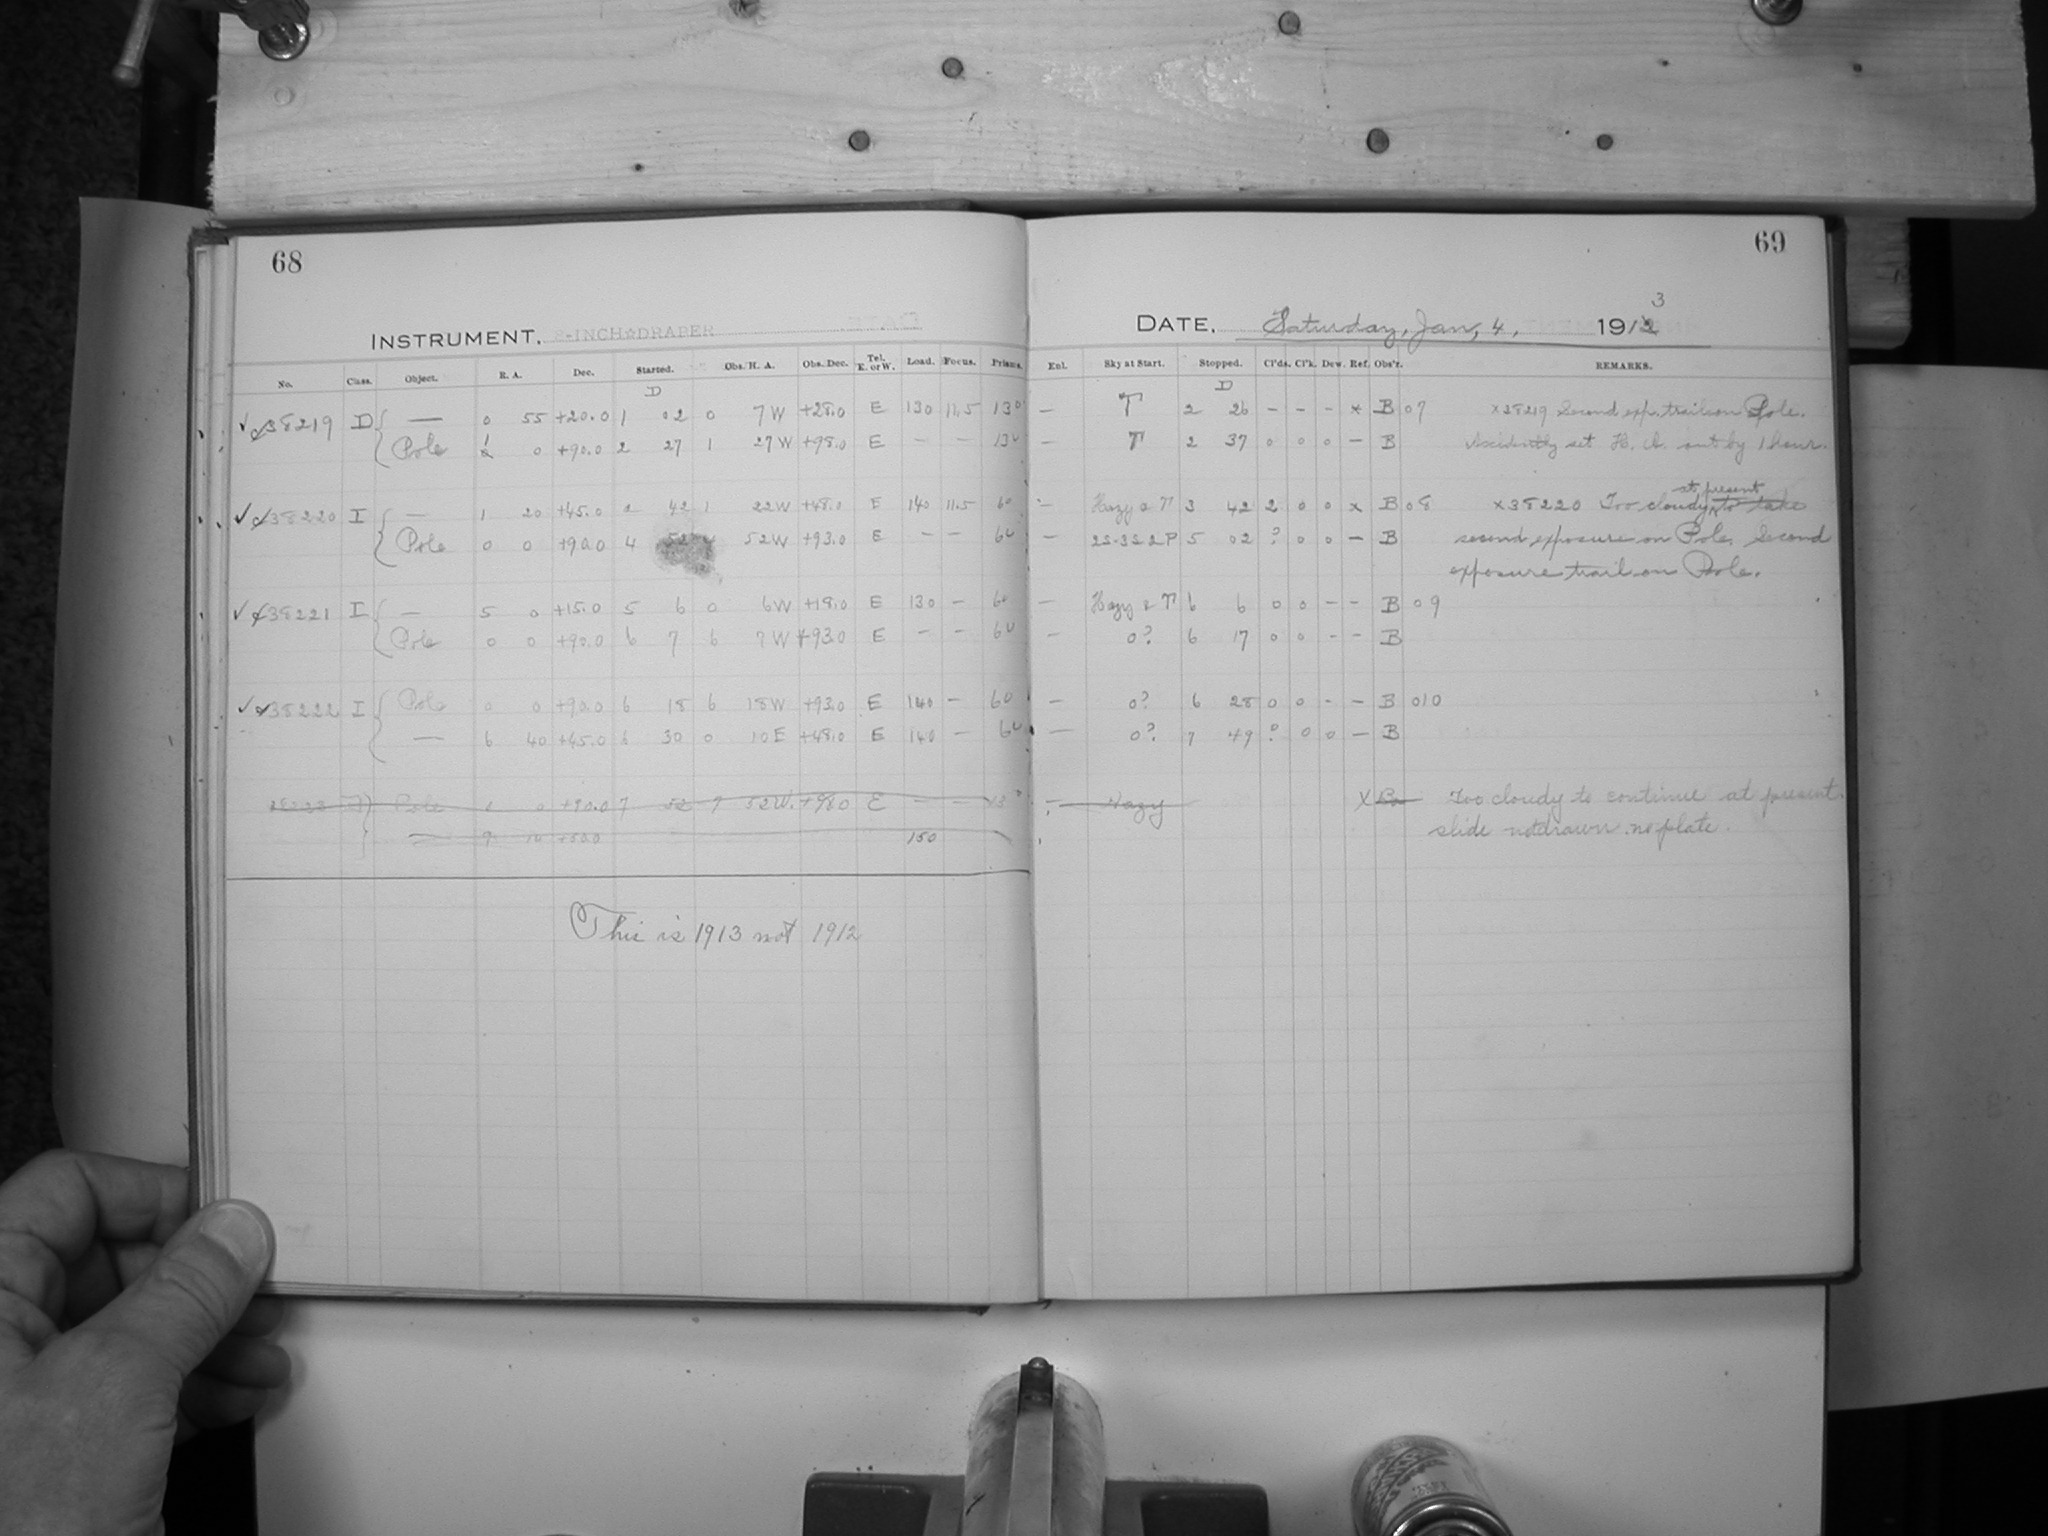 68
INSTRUMENT. 8-INCH DRAPER
No. Class. Object. R. A. Dec. Started. Obs. H. A. Obs. Dec. Tel. E. or W. Load. Focus. Prisms.
D
✓ 38219 D { — 0 55 +20.0 1 02 0 7W +28.0 E 130 11.5 130
Pole 1 0 +90.0 2 27 1 27W +98.0 E — — 130
✓ 38220 I { — 1 20 +45.0 2 42 1 22W +48.0 E 140 11.5 60
Pole 0 0 +90.0 4 52 52W +93.0 E — — 60
✓ 38221 I { — 5 0 +15.0 5 6 0 6W +18.0 E 130 — 60
Pole 0 0 +90.0 6 7 6 7W +93.0 E — — 60
✓ 38222 I { Pole 0 0 +90.0 6 18 6 18W +93.0 E 140 — 60
— 6 40 +45.0 6 30 0 10E +48.0 E 140 — 60
38223 Pole 0 +90.0 7 52 7 52W. +98.0 E — —
9 10 +50.0 150
This is 1913 not 1912
69
DATE. Saturday, Jan, 4, 1912 3
Enl. Sky at Start. Stopped. Cl'ds. Cl'k. Dew. Ref. Obs'r. REMARKS.
D
— T 2 26 — — — x B 07 x38219 Second exp. trails on Pole.
— T 2 37 0 0 0 — B Accidently set H. A. out by 1 hour.
at present
— Hazy & T 3 42 2 0 0 x B 08 x38220 Too cloudy to take
— 2S-3S 2P 5 02 ? 0 0 — B second exposure on Pole. Second
exposure trail on Pole.
— Hazy & T 6 6 0 0 — — B 09
— 0? 6 17 0 0 — — B
— 0? 6 28 0 0 — — B 010
— 0? 7 49 ? 0 0 — B
— Hazy X B Too cloudy to continue at present.
slide not drawn. no plate.